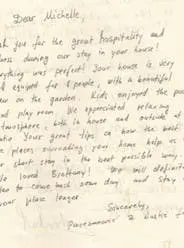 Dear Michelle,
you for the great hospitality and
during our stay in your house!
was perfect! Your house is very
equiped for 8 people, with a beautiful
on the garden. Kids enjoyed the
and play room. We appreciated relaxing
both in house and outside
Your great tips on how the best
places surrounding your home help us
short stay in the best possible way.
loved Brattany! We will definitely
to come back some day and stay
your place longer
Sincerely,